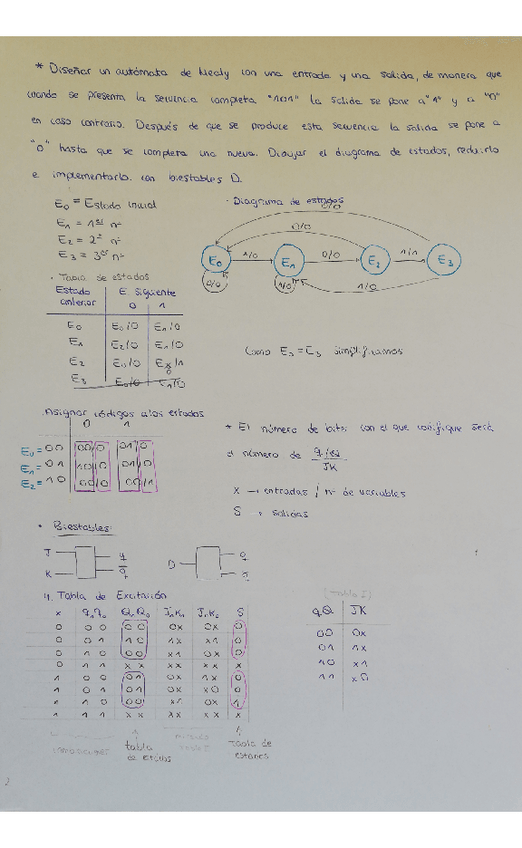 * Diseñar un autómata de Mealy con una entrada y una salida, de manera que
cuando se presenta la secuencia completa, "101" la salida se pone a "1" y a "0"
en caso contrario. Después de que se produce esta secuencia la salida se pone a
"0" hasta que se completa una nueva. Dibujar el diagrama de estados, reducirlo
e implementarlo con biestables D.
E0 = Estado inicial
E1 = 1er nº
E2 = 2º nº
E3 = 3er nº
· Diagrama de estados
0/0
0/0
E0 1/0 E1 0/0 E2 1/1 E3
0/0 1/0 1/0
· Tabla de estados
Estado anterior E. Siguiente
0 1
E0 E0/0 E1/0
E1 E2/0 E1/0
E2 E0/0 /1
E3 E0/0 E1/0
simplificamos
Asignar códigos a los estados
0 1
E0 = 00 00/0 01/0
E1 = 01 10/0 01/0
E2 = 10 00/0 00/1
* El número de bits con el que codifique será
el número de q/Q
JK
X → entradas / nº de variables
S → salidas
• Biestables:
J q
K q̅
D
4. Tabla de Excitación
x q1q0 Q1Q0 S
0 0 0 0 0 0x 0x 0
0 0 1 1 0 1x x1 0
0 1 0 0 0 x1 0x 0
0 1 1 x x xx xx x
1 0 0 0 1 0x 1x 0
1 0 1 0 1 0x x0 0
1 1 0 0 0 x1 0x 1
1 1 1 x x xx xx x
tabla
de estados
Tabla de
estados
(Tabla I)
qQ JK
00 0x
01 1x
10 x1
11 x0
2